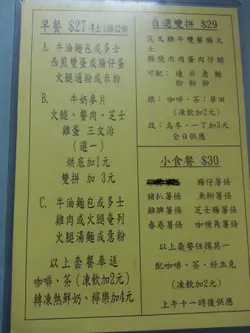 早餐 $27
A. 牛油麵包或多士
西煎雙蛋或腸仔蛋
火腿通粉或米粉
B. 牛奶麥片
火腿、餐肉、芝士
雞蛋 三文治
(選一)
烘底加1元
雙拼 加 3元
C. 牛油麵包或多士
雞肉或火腿奄列
火腿湯麵或意粉
以上套餐奉送
咖啡、茶(凍飲加2元)
轉凍熱鮮奶、檸樂加4元
自選雙拼 $29
可配: 通 米 意麵
粉 粉 粉
跟: 咖啡、茶、華田
(凍飲加2元)
改: 烏冬、一丁加3元
全日供應
小食餐 $30
腸仔薯條
豬扒薯條 魚柳薯條
雞脾薯條 芝士腸薯條
春卷薯條 咖喱角薯條
以上套餐任擇其一
配咖啡、茶、好立克
(凍飲加2元)
上午十一時後供應